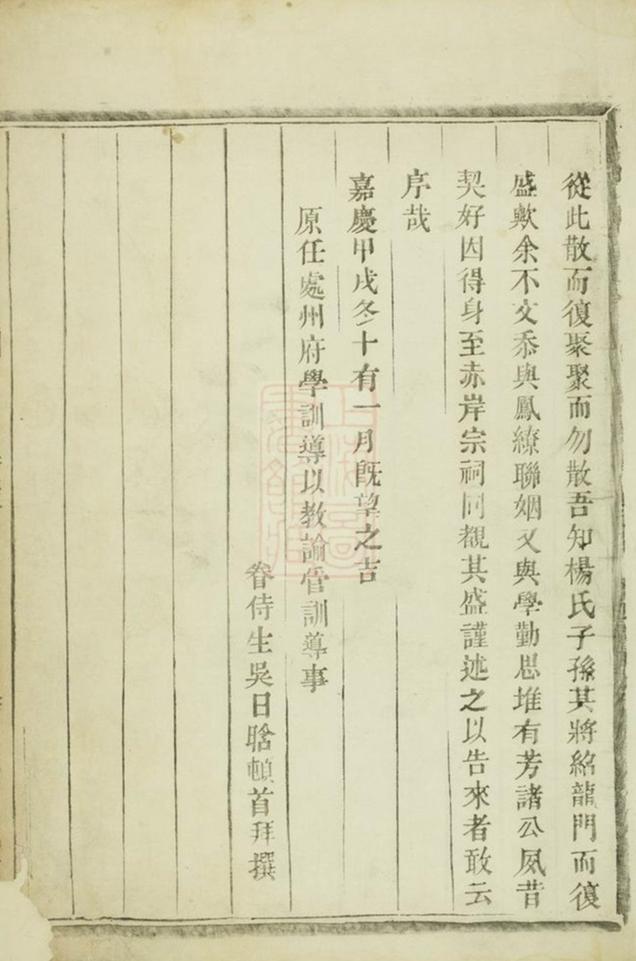 從此散而復聚聚而勿散吾知楊氏子孫其將紹龍門而復
盛歟余不文忝與鳳繚聯姻又與學勤思堆有芳諸公夙昔
契好因得身至赤岸宗祠同觀其盛謹述之以告來者敢云
序哉
嘉慶甲戌冬十有一月旣望之吉
原任處州府學訓導以教諭管訓導事
眷侍生吳日晗頓首拜撰